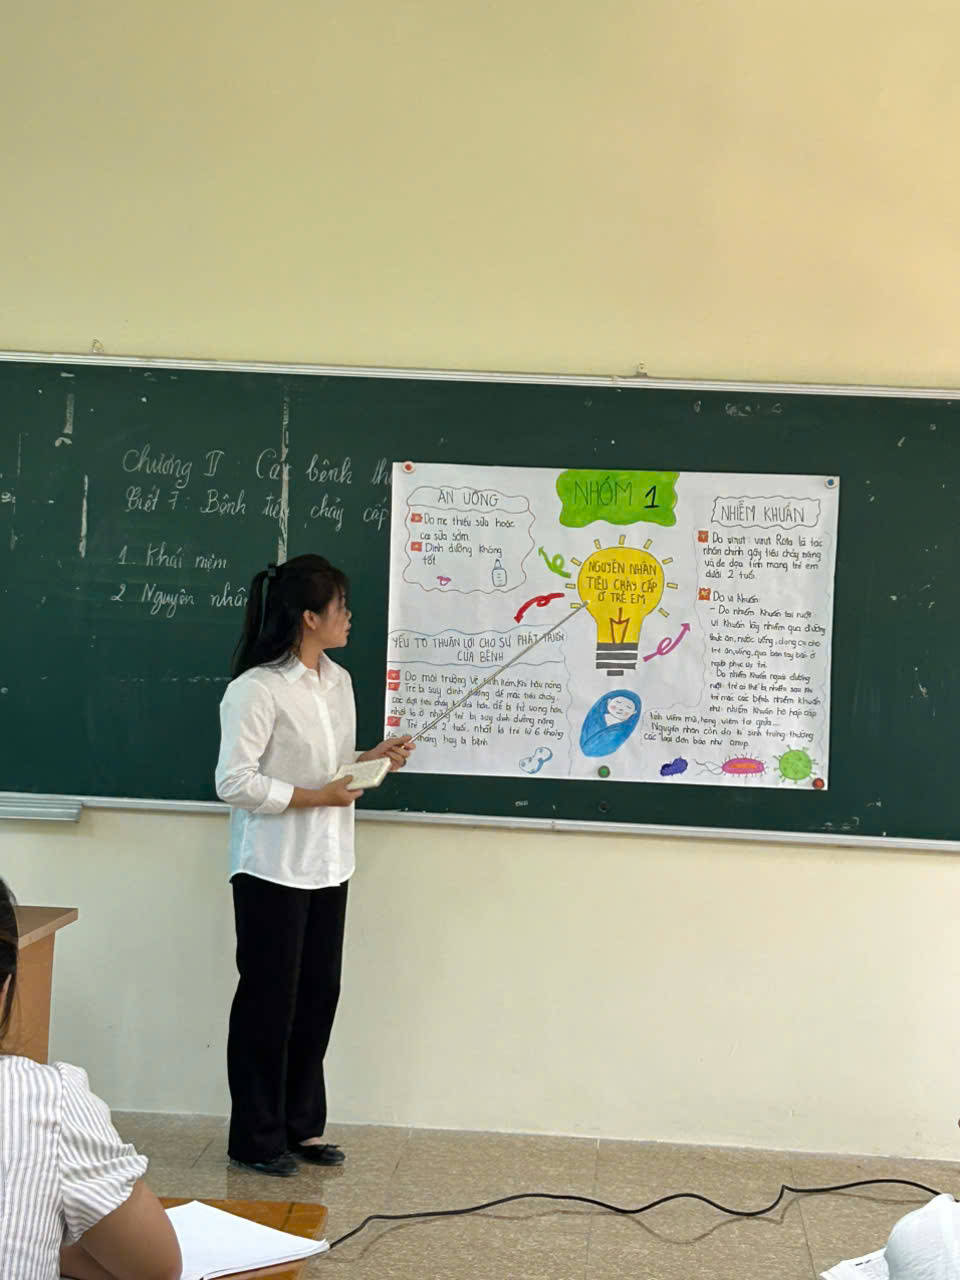 Chương II : Các bệnh th
Tiết 7 : Bệnh tiêu chảy cấp
1. Khái niệm
2 Nguyên nhân
NHÓM 1
NGUYÊN NHÂN
TIÊU CHẢY CẤP
Ở TRẺ EM
ĂN UỐNG
Do mẹ thiếu sữa hoặc
cai sữa sớm.
Dinh dưỡng không
tốt
YẾU TỐ THUẬN LỢI CHO SỰ PHÁT TRIỂN
CỦA BỆNH
Do môi trường vệ sinh kém, khí hậu nóng
Trẻ bị suy dinh dưỡng dễ mắc tiêu chảy
các đợt tiêu chảy kéo dài hơn, dễ bị tử vong hơn,
nhất là ở những trẻ bị suy dinh dưỡng nặng
Trẻ dưới 2 tuổi, nhất là trẻ từ 6 tháng
tháng hay bị bệnh
NHIỄM KHUẨN
Do virut : virut Rota là tác
nhân chính gây tiêu chảy nặng
và đe dọa tính mạng trẻ em
dưới 2 tuổi.
Do vi khuẩn:
- Do nhiễm khuẩn tại ruột :
vi khuẩn lây nhiễm qua đường
thức ăn, nước uống, dụng cụ cho
trẻ ăn, uống, qua bàn tay bẩn ở
người phục vụ trẻ.
- Do nhiễm khuẩn ngoài đường
ruột : trẻ có thể bị nhiễm sau khi
trẻ mắc các bệnh nhiễm khuẩn
như : nhiễm khuẩn hô hấp cấp
tính viêm mũi, họng, viêm tai giữa...
Nguyên nhân còn do kí sinh trùng thường
các loại đơn bào như amip.